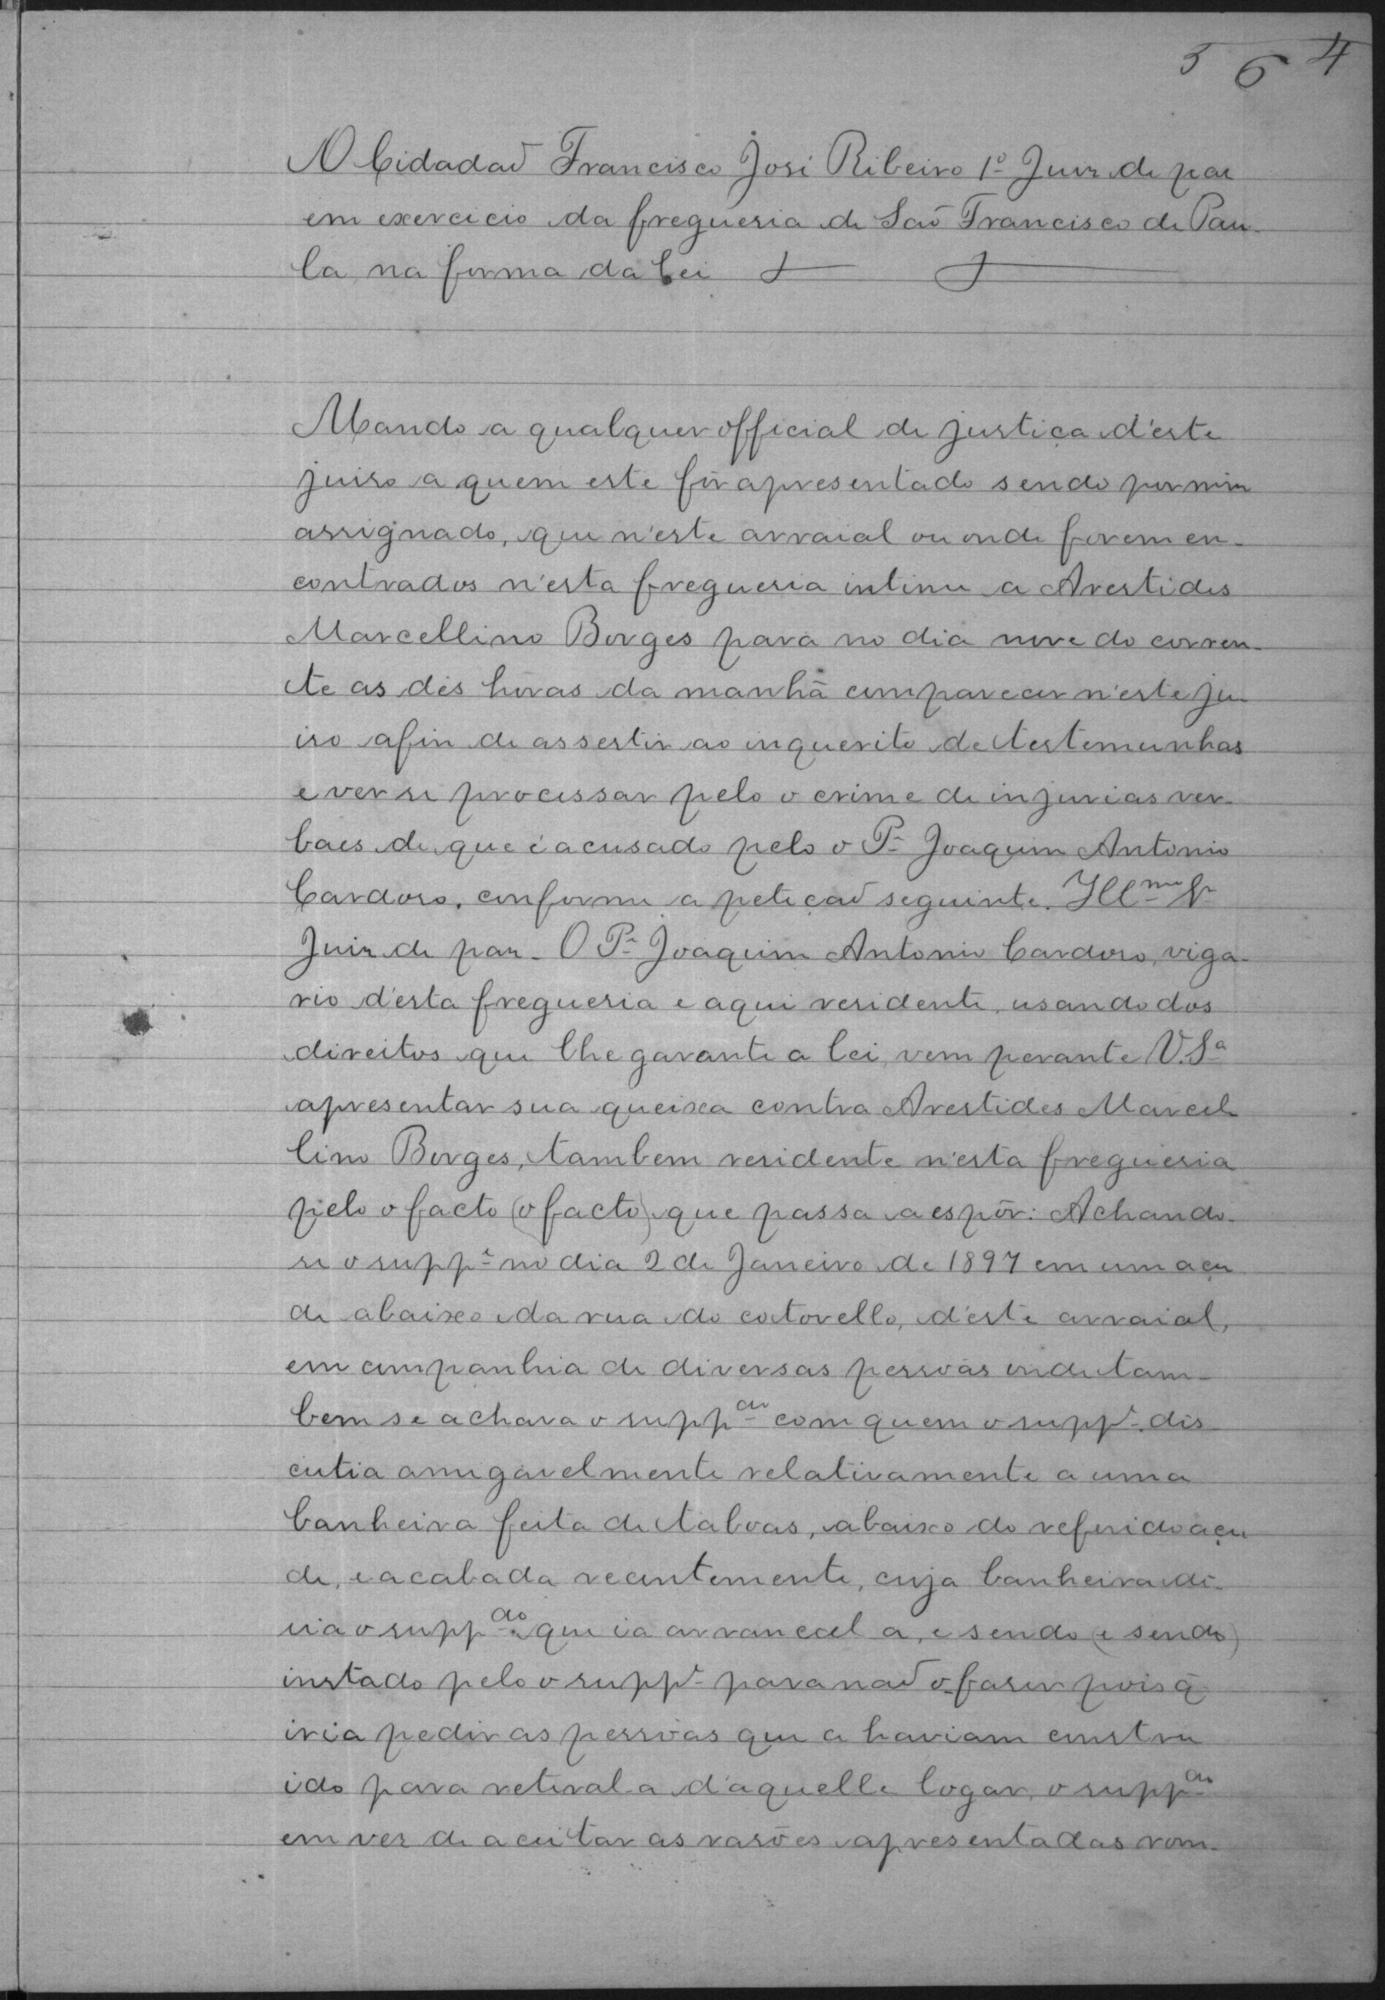 5 6 4
O Cidadaõ Francisco José Ribeiro 1º Juiz de paz
em exercicio da freguesia de Saõ Francisco de Pau-
la, na forma da lei
Mando a qualquer official de justiça d'este
juiso a quem este fôr apresentado sendo por mim
assignado, que n'este arraial ou onde forem en-
contrados n'esta freguesia intime a Arestides
Marcellino Borges para no dia nove do corren-
te as dés hóras da manhã comparecer n'este ju
iso afin de assestir ao inquerito de testemunhas
e ver se processar pelo o crime de injurias ver-
baes de que é acusado pelo o Pe Joaquim Antonio
Cardoso, conforme a peteçaõ seguinte. Illmo Sr
Juiz de paz - O Pe Joaquim Antonio Cardoso, viga-
rio d'esta freguesia e aqui residente, usando dos
direitos que lhe garante a lei, vem perante V. Sa
apresentar sua queixa contra Arestides Marcel
lino Borges, tambem residente n'esta freguesia
pelo o facto (o facto) que passa a espôr: Achando-
se o suppe no dia 2 de Janeiro de 1897 em um açu
de abaixo da rua do cotovello, d'este arraial,
em companhia de diversas pessôas onde tam-
bem se achava o suppdo com quem o suppe dis-
cutia amigavelmente relativamente a uma
banheira feita de taboas, abaixo do referido açu
de, e acabada recentemente, cuja banheira di-
sia o suppdo que ia arrancal a, e sendo (e sendo)
instado pelo o suppe para naõ o faser pois q̃
iria pedir as pessôas que a haviam constru
ido para retiral-a d'aquelle logar, o suppdo
em ves de aceitar as rasões apresentadas rom-